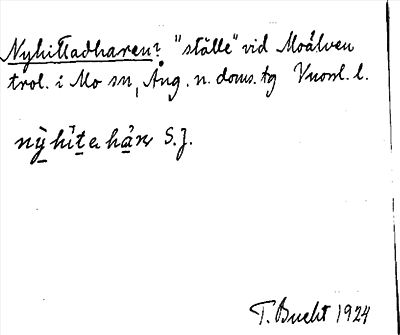 Nyhittadharen? "ställe" vid Moälven
trol. i Mo sn, Ång. n. doms. tg Vnorrl. l.
nỳhìtehár̥ S.J.
T. Bucht 1924